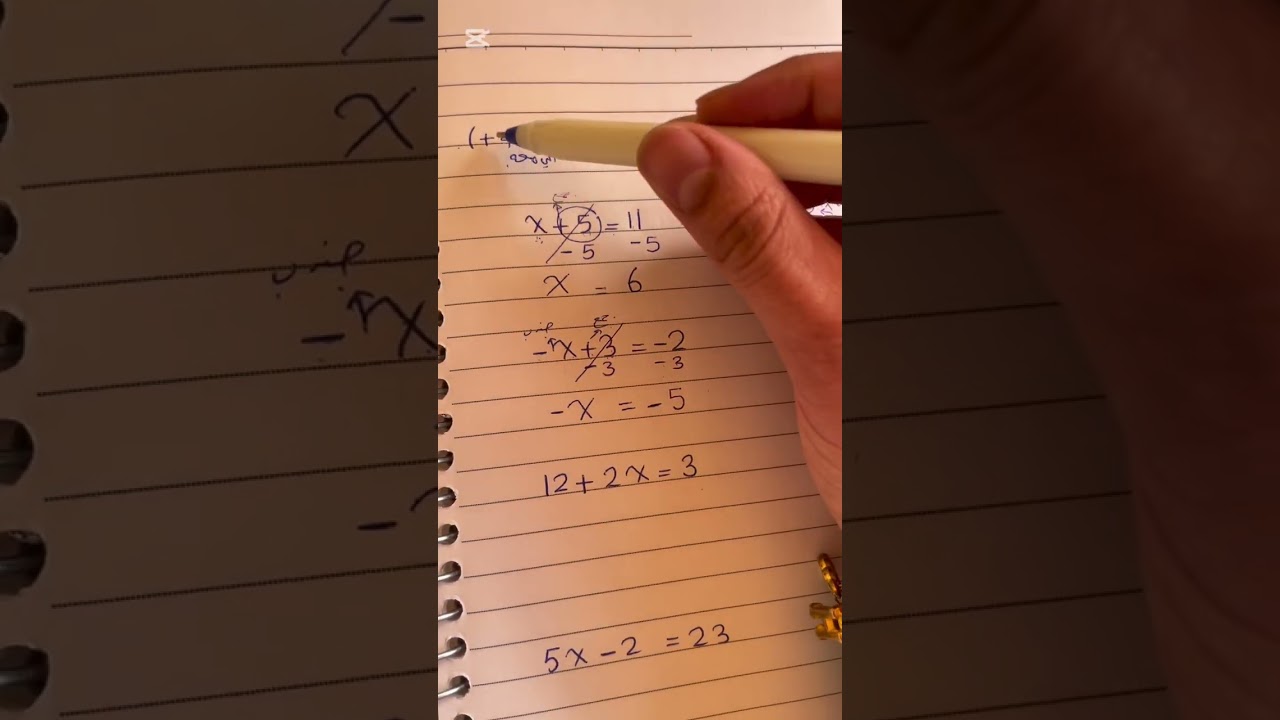 (+
x + 5 = 11
-5 -5
x = 6
-x + 3 = -2
-3 -3
-x = -5
12 + 2x = 3
5x - 2 = 23